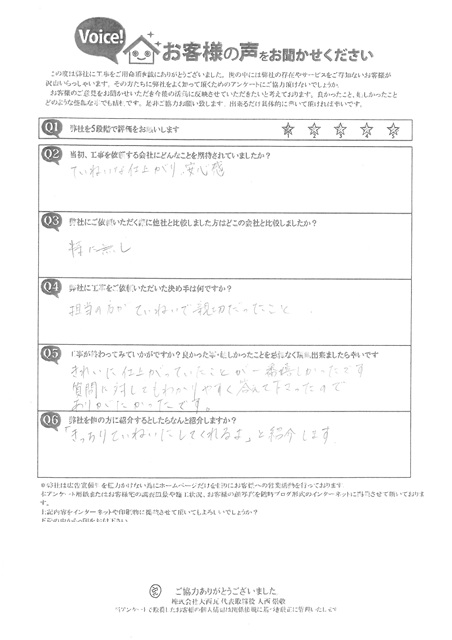 Voice!
お客様の声をお聞かせください
この度は弊社に工事をご用命頂き誠にありがとうございました。世の中には弊社の存在やサービスをご存知ないお客様が
沢山いらっしゃいます。その方たちに弊社をよく知って頂くためのアンケートにご協力頂けないでしょうか。
お客様のご意見をお聞かせいただき今後の活動に反映させていただきたいと考えております。良かったこと、悲しかったこと
どのような些細な事でも結構です。是非ご協力お願い致します。出来るだけ具体的に書いて頂ければ幸いです。
Q1 弊社を5段階で評価をお願いします
1 2 3 4 5
Q2 当初、工事を依頼する会社にどんなことを期待されていましたか?
ていねいな仕上がり、安心感
Q3 弊社にご依頼いただく際に他社と比較しました方はどこの会社と比較しましたか?
特に無し
Q4 弊社に工事をご依頼いただいた決め手は何ですか?
担当の方がていねいで親切だったこと.
Q5 工事が終わってみていかがですか?
きれいに仕上がっていたことが一番嬉しかったです
質問に対してもわかりやすく答えて下さったので
ありがたかったです。
Q6 弊社を他の方に紹介するとしたらなんと紹介しますか?
「きっちりていねいにしてくれるよ」と紹介します.
上記内容をインターネットや印刷物に掲載させて頂いてもよろしいでしょうか?
ご協力ありがとうございました